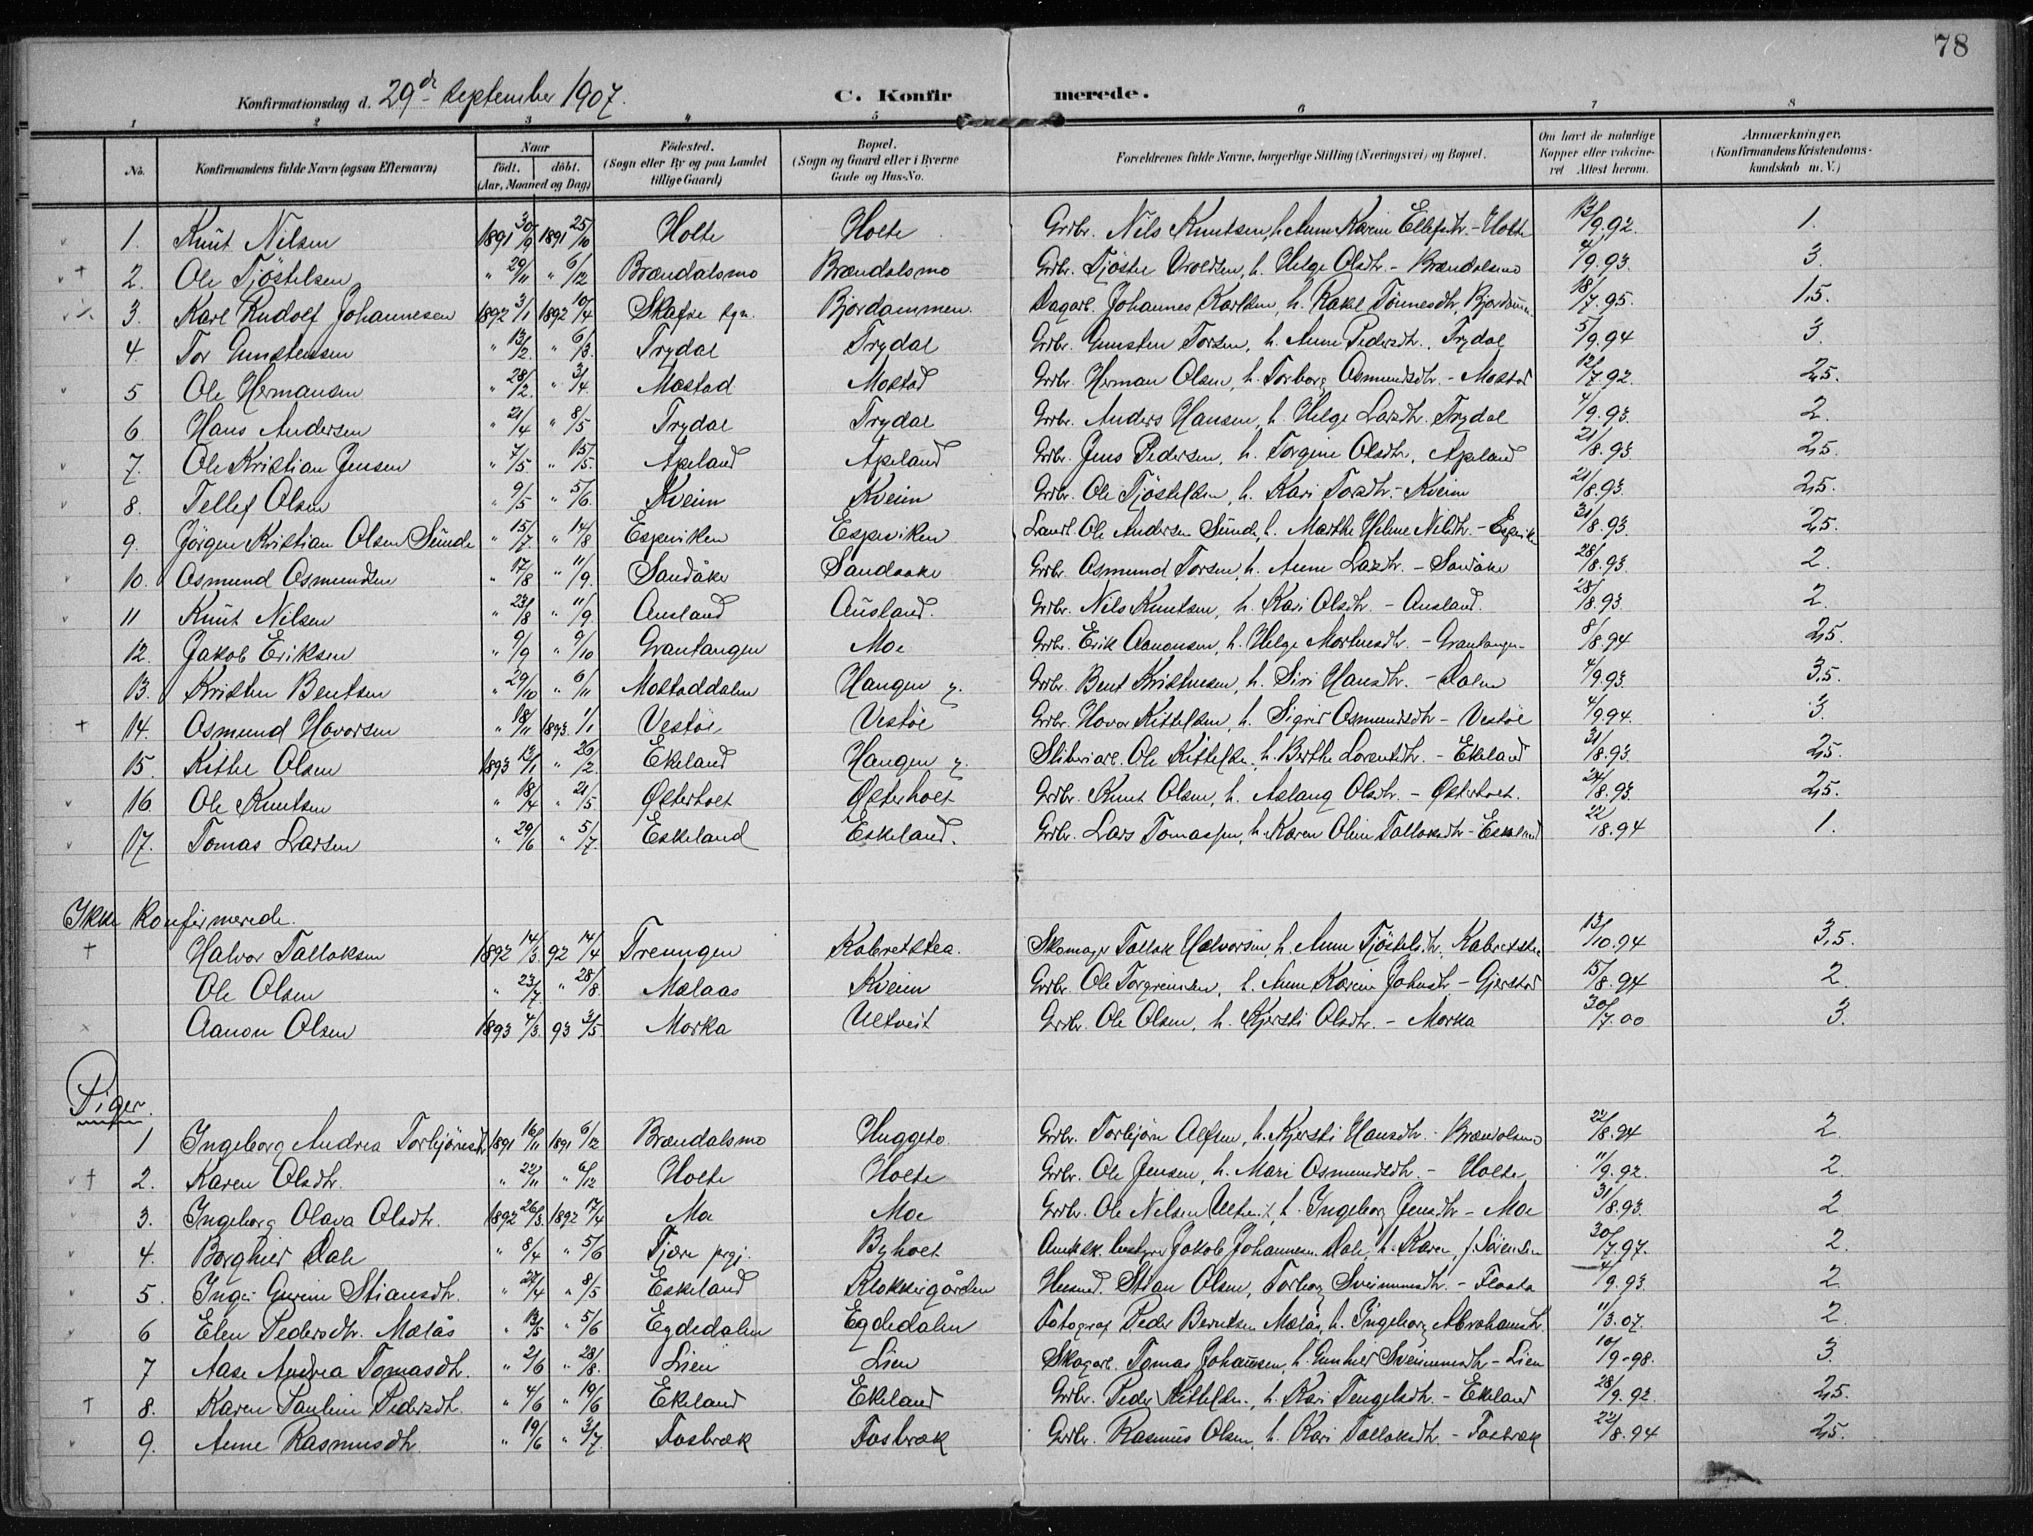 78
Konfirmationsdag d. 29de september 1907. C. Konfirmerede.
1 2 3 4 5 6 7 8
No. Konfirmandens fulde Navn (ogsaa Efternavn) Naar født. døbt. (Aar, Maaned og Dag) Fødested. (Sogn eller By og paa Landet tillige Gaard) Bopæl. (Sogn og Gaard eller i Byerne Gade og Hus-No. Forældrenes fulde Navne, borgerlige Stilling (Næringsvei) og Bopæl. Om havt de naturlige Kopper eller vakcineret Attest herom. Anmærkninger. (Konfirmandens Kristendomskundskab m. V.)
1. Knut Nilsen 1891 30/9 1891 25/10 Holte Holte Grdbr. Nils Knutsen, h. Anne Karine Ellefsdtr. - Holte 13/9.92. 1.
† 2. Ole Tjöstelsen " 29/11 " 6/12 Brændalsmo Brændalsmo Grdbr. Tjöstel Uvoldsen, h. Helge Olsdtr. - Brændalsmo 4/9.93. 3.
3. Karl Rudolf Johannesen 1892 3/1 1892 10/4 Skafse sgn. Bjordammen. Dagarb. Johannes Karlsen, h. Rakel Tönnesdtr, Bjordam 18/7.95. 1,5.
4. Tor Gunstensen " 13/2. " 6/3. Trydal Trydal Grdbr. Gunsten Torsen, h. Anne Pedersdtr. Trydal 5/9.94 3.
5 Ole Hermansen " 28/2. " 3/4. Mostad Mostad Grdbr. Herman Olsen, h. Torborg Osmundsdtr. - Mostad 12/7.92. 2,5.
6. Hans Andersen " 21/4 " 8/5 Trydal Trydal Grdbr. Anders Hansen, h. Helge Larsdtr. Trydal 4/9.93. 2.
7. Ole Kristian Jensen " 7/5 " 15/5. Apeland Apeland Grdbr. Jens Pedersen, h. Torgine Olsdtr, Apeland 21/8.93 2,5.
8. Tellef Olsen " 9/5 " 5/6. Kveim Kveim Grdbr. Ole Tjöstelsen, h. Kari Torsdtr. - Kveim 21/8.93. 2,5.
9. Jörgen Kristian Olsen Sunde " 15/7 " 14/8 Espeviken Espeviken Ole Andersen Sunde, h. Marthe Helene Nilsdtr. - Espevike 31/8.93 2,5.
10. Osmund Osmundsen " 17/8 " 11/9. Sandåke Sandaake Grdbr. Osmund Torsen, h. Anne Larsdtr. - Sandåke 28/8.93. 2.
11 Knut Nilsen " 23/8 " 11/9 Ausland Ausland. Grdbr. Nils Knutsen, h. Kari Olsdtr. - Ausland. 28/8.93. 2.
12. Jakob Eriksen " 9/9 " 9/10 Grantangen Moe Grdbr. Erik Aanonsen, h. Helge Mortensdtr. - Grantangen 8/8.94 2,5.
13. Kristen Bentsen " 29/10 " 6/11 Mostaddalen Hangen y. Grdbr. Bent Kristensen, h. Siri Hansdtr. - Dalen 4/9.93. 3,5.
† 14. Osmund Hovorsen " 18/11 1893. 1/1 Vestöl Vestöl Grdbr. Hovor Kittelsen, h. Sigrid Osmundsdtr - Vestöl 4/9.94. 3.
15. Kittel Olsen 1893 13/1 " 26/2. Ekeland Hangen y. Sliberiarb. Ole Kittelsen, h. Berthe Lorentsdtr. - Ekeland 31/8.93. 2,5.
16. Ole Knutsen " 18/4 " 21/5. Østerholt Østerholt Grdbr. Knut Olsen, h. Aslaug Olsdtr. - Østerholt. 24/8.93. 2,5.
17. Tomas Larsen " 29/6 " 5/7. Eskeland Eskeland. Grdbr. Lars Tomassen, h. Karen Oline Tallaksdtr - Eskeland 22/8.94 1.
Ikke konfirmerede.
† Halvor Tallaksen 1892 14/3 92 14/4 Treungen Kabretstea. Skomager Tallak Halvorsen, h. Anne Tjöstelsdtr. Kabretstea 13/10.94 3,5.
Ole Olsen " 23/7 " 28/8. Mælaas Kveim Grdbr. Ole Torgrimsen, h. Anne Karine Johnsdtr - Gjerstad 15/8.94 2.
Aanon Olsen 1893 4/3. 93 3/5 Morka Ueltveit Grdbr. Ole Olsen, h. Kjersti Olsdtr. - Morka 30/7.00 3.
Piger.
1 Ingeborg Andrea Torbjörnsdtr 1891 16/11 1891 6/12 Brændalsmo Huggeto Grdbr. Torbjörn Alfsen, h. Kjersti Hansdtr. Brændalsmo 22/8.94 2.
† 2. Karen Olsdtr. " 22/11 " 6/12 Holte Holte Grdbr. Ole Jensen, h. Mari Osmundsdtr. - Holte 11/9.92. 2.
3. Ingeborg Olava Olsdtr. 1892 26/3. 1892 17/4 Moe Moe Grdbr. Ole Nilsen Ueltveit, h. Ingeborg Jensdtr - Moe 31/8.93. 2
4. Borghild Dale " 8/4 " 5/6 Tjøre prgj. Byholt Jakob Johannesen Dale, h. Karen, f. Sørensen 30/7.97. 2.
5. Inger Gurine Stiansdtr. " 27/4 " 8/5 Eskeland Klokkergården Husmd. Stian Olsen, Torborg Sveinunsdtr. - Flaata 4/9.93. 2
6 Elen Pedersdtr. Mælås " 13/5 " 5/6 Egdedalen Egdedalen Fotograf Peder Berntsen Mælås, h. Ingeborg Abrahamsdtr. 11/3.07. 2.
7 Aase Andrea Tomasdtr. " 2/6 " 28/8. Lien Lien Skogarb. Tomas Johansen, h. Gunhild Sveinunsdtr - Lien 10/9-98. 3.
† 8. Karen Pauline Pedersdtr. " 4/6 " 19/6 Ekeland Ekeland Grdbr. Peder Kittelsen, h. Kari Tengelsdtr. - Ekeland 28/9.92. 2,5.
9. Anne Rasmusdtr. " 19/6 " 3/7. Fosbræk Fosbræk Grdbr. Rasmus Olsen, h. Kari Tallaksdtr. - Fosbræk 22/8.94 2,5.